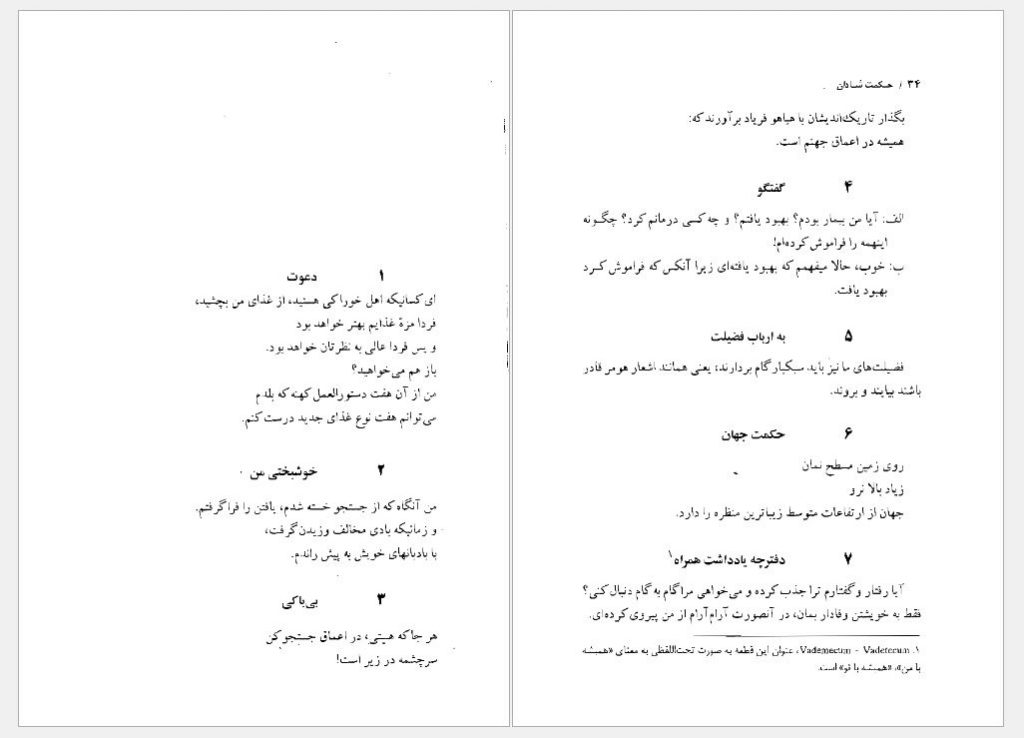 ۱ دعوت
ای کسانیکه اهل خوراکی هستید، از غذای من بچشید،
فردا مزهٔ غذایم بهتر خواهد بود
و پس فردا عالی به نظرتان خواهد بود.
باز هم می‌خواهید؟
من از آن هفت دستورالعمل کهنه که بلدم
می‌توانم هفت نوع غذای جدید درست کنم.
۲ خوشبختی من
من آنگاه که از جستجو خسته شدم، یافتن را فرا گرفتم.
و زمانیکه بادی مخالف وزیدن گرفت،
با بادبانهای خویش به پیش راندم.
۳ بی‌باکی
هر جا که هستی، در اعماق جستجو کن
سرچشمه در زیر است!
۳۴ / حکمت شادان
بگذار تاریک‌اندیشان با هیاهو فریاد برآورند که:
همیشه در اعماق جهنم است.
۴ گفتگو
الف: آیا من بیمار بودم؟ بهبود یافتم؟ و چه کسی درمانم کرد؟ چگونه
اینهمه را فراموش کرده‌ام!
ب: خوب، حالا میفهمم که بهبود یافته‌ای زیرا آنکس که فراموش کرد
بهبود یافت.
۵ به ارباب فضیلت
فضیلت‌های ما نیز باید سبکبار گام بردارند، یعنی همانند اشعار هومر قادر
باشند بیایند و بروند.
۶ حکمت جهان
روی زمین مسطح نمان
زیاد بالا نرو
جهان از ارتفاعات متوسط زیباترین منظره را دارد.
۷ دفترچه یادداشت همراه۱
آیا رفتار و گفتارم ترا جذب کرده و می‌خواهی مرا گام به گام دنبال کنی؟
فقط به خویشتن وفادار بمان، در آنصورت آرام آرام از من پیروی کرده‌ای.
۱. Vademecum - Vadetecum، عنوان این قطعه به صورت تحت‌اللفظی به معنای «همیشه
با من»، «همیشه با تو» است.